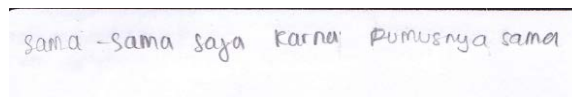 sama -sama saja karna rumusnya sama